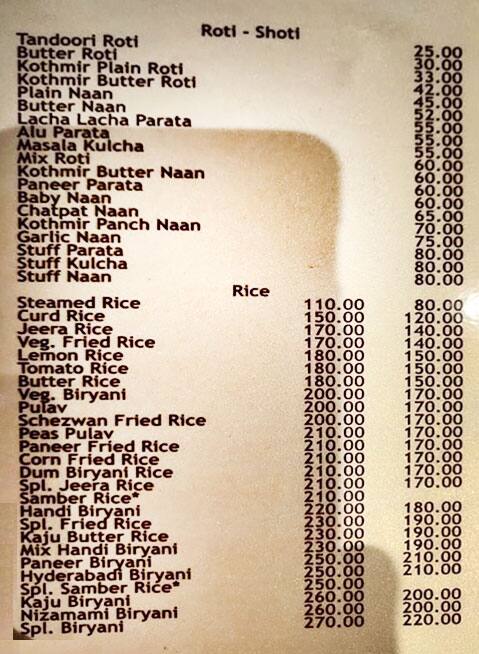 Roti - Shoti
Tandoori Roti 25.00
Butter Roti 30.00
Kothmir Plain Roti 33.00
Kothmir Butter Roti 42.00
Plain Naan 45.00
Butter Naan 52.00
Lacha Lacha Parata 55.00
Alu Parata 55.00
Masala Kulcha 55.00
Mix Roti 60.00
Kothmir Butter Naan 60.00
Paneer Parata 60.00
Baby Naan 60.00
Chatpat Naan 65.00
Kothmir Panch Naan 70.00
Garlic Naan 75.00
Stuff Parata 80.00
Stuff Kulcha 80.00
Stuff Naan 80.00
Rice
Steamed Rice 110.00 80.00
Curd Rice 150.00 120.00
Jeera Rice 170.00 140.00
Veg. Fried Rice 170.00 140.00
Lemon Rice 180.00 150.00
Tomato Rice 180.00 150.00
Butter Rice 180.00 150.00
Veg. Biryani 200.00 170.00
Pulav 200.00 170.00
Schezwan Fried Rice 200.00 170.00
Peas Pulav 210.00 170.00
Paneer Fried Rice 210.00 170.00
Corn Fried Rice 210.00 170.00
Dum Biryani Rice 210.00 170.00
Spl. Jeera Rice 210.00 170.00
Samber Rice* 210.00
Handi Biryani 220.00 180.00
Spl. Fried Rice 230.00 190.00
Kaju Butter Rice 230.00 190.00
Mix Handi Biryani 230.00 190.00
Paneer Biryani 250.00 210.00
Hyderabadi Biryani 250.00 210.00
Spl. Samber Rice* 250.00
Kaju Biryani 260.00 200.00
Nizamami Biryani 260.00 200.00
Spl. Biryani 270.00 220.00